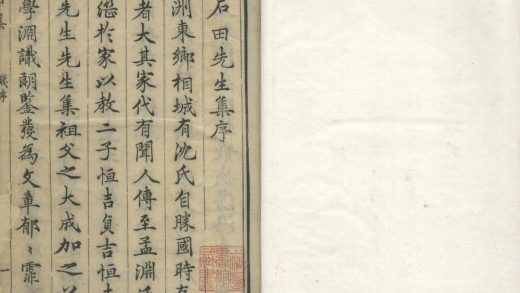 石田先生集序
洲東鄉相城有沈氏自勝國時有
者大其家代有聞人傳至孟淵
於家以教二子恒吉貞吉恒
先生先生集祖父之大成加之
學淵識朗鑒發爲文章郁〻霏